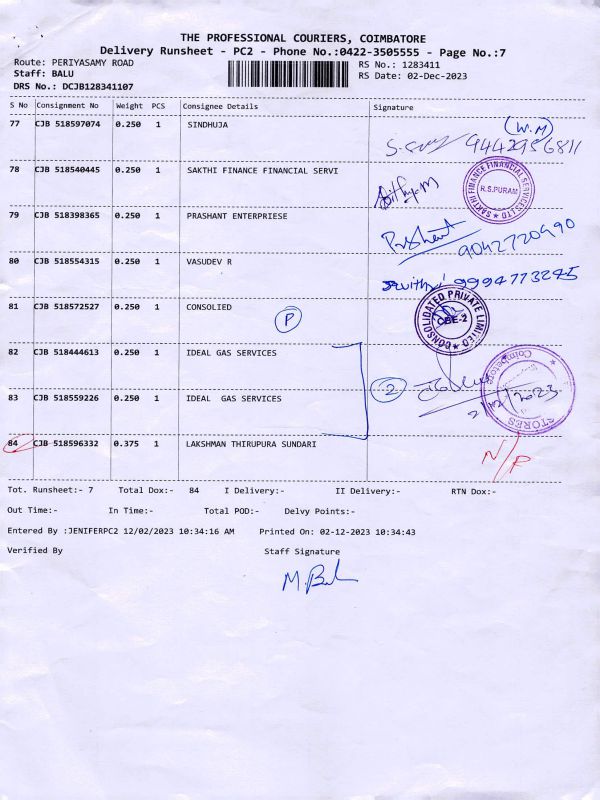 THE PROFESSIONAL COURIERS, COIMBATORE
Delivery Runsheet - PC2 - Phone No.:0422-3505555 - Page No.:7
Route: PERIYASAMY ROAD
RS No.: 1283411
Staff: BALU
RS Date: 02-Dec-2023
DRS No.: DCJB128341107
S No Consignment No Weight PCS Consignee Details Signature
77 CJB 518597074 0.250 1 SINDHUJA
(W.M)
9442956811
78 CJB 518540445 0.250 1 SAKTHI FINANCE FINANCIAL SERVI
SAKTHI FINANCE FINANCIAL SERVICES LTD
R.S.PURAM
79 CJB 518398365 0.250 1 PRASHANT ENTERPRIESE
Prashant
9042720490
80 CJB 518554315 0.250 1 VASUDEV R
9994773245
81 CJB 518572527 0.250 1 CONSOLIED
P
CONSOLIDATED PRIVATE LIMITED
CBE-2
82 CJB 518444613 0.250 1 IDEAL GAS SERVICES
83 CJB 518559226 0.250 1 IDEAL GAS SERVICES
2
Coimbatore
STORES
84 CJB 518596332 0.375 1 LAKSHMAN THIRUPURA SUNDARI
N/P
Tot. Runsheet:- 7 Total Dox:- 84 I Delivery:- II Delivery:- RTN Dox:-
Out Time:- In Time:- Total POD:- Delvy Points:-
Entered By :JENIFERPC2 12/02/2023 10:34:16 AM Printed On: 02-12-2023 10:34:43
Verified By Staff Signature
M. Bal